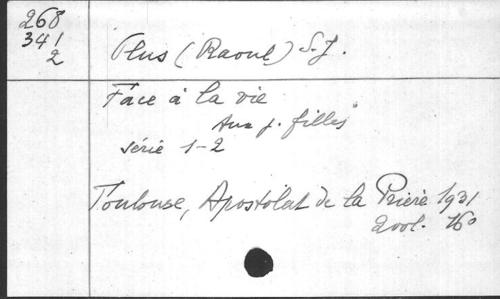 268
341
2
Plus (Raoul) S.J.
Face à la vie
Aux j. filles
Série 1-2
Toulouse, Apostolat de la Prière 1931
2 vol. 16°